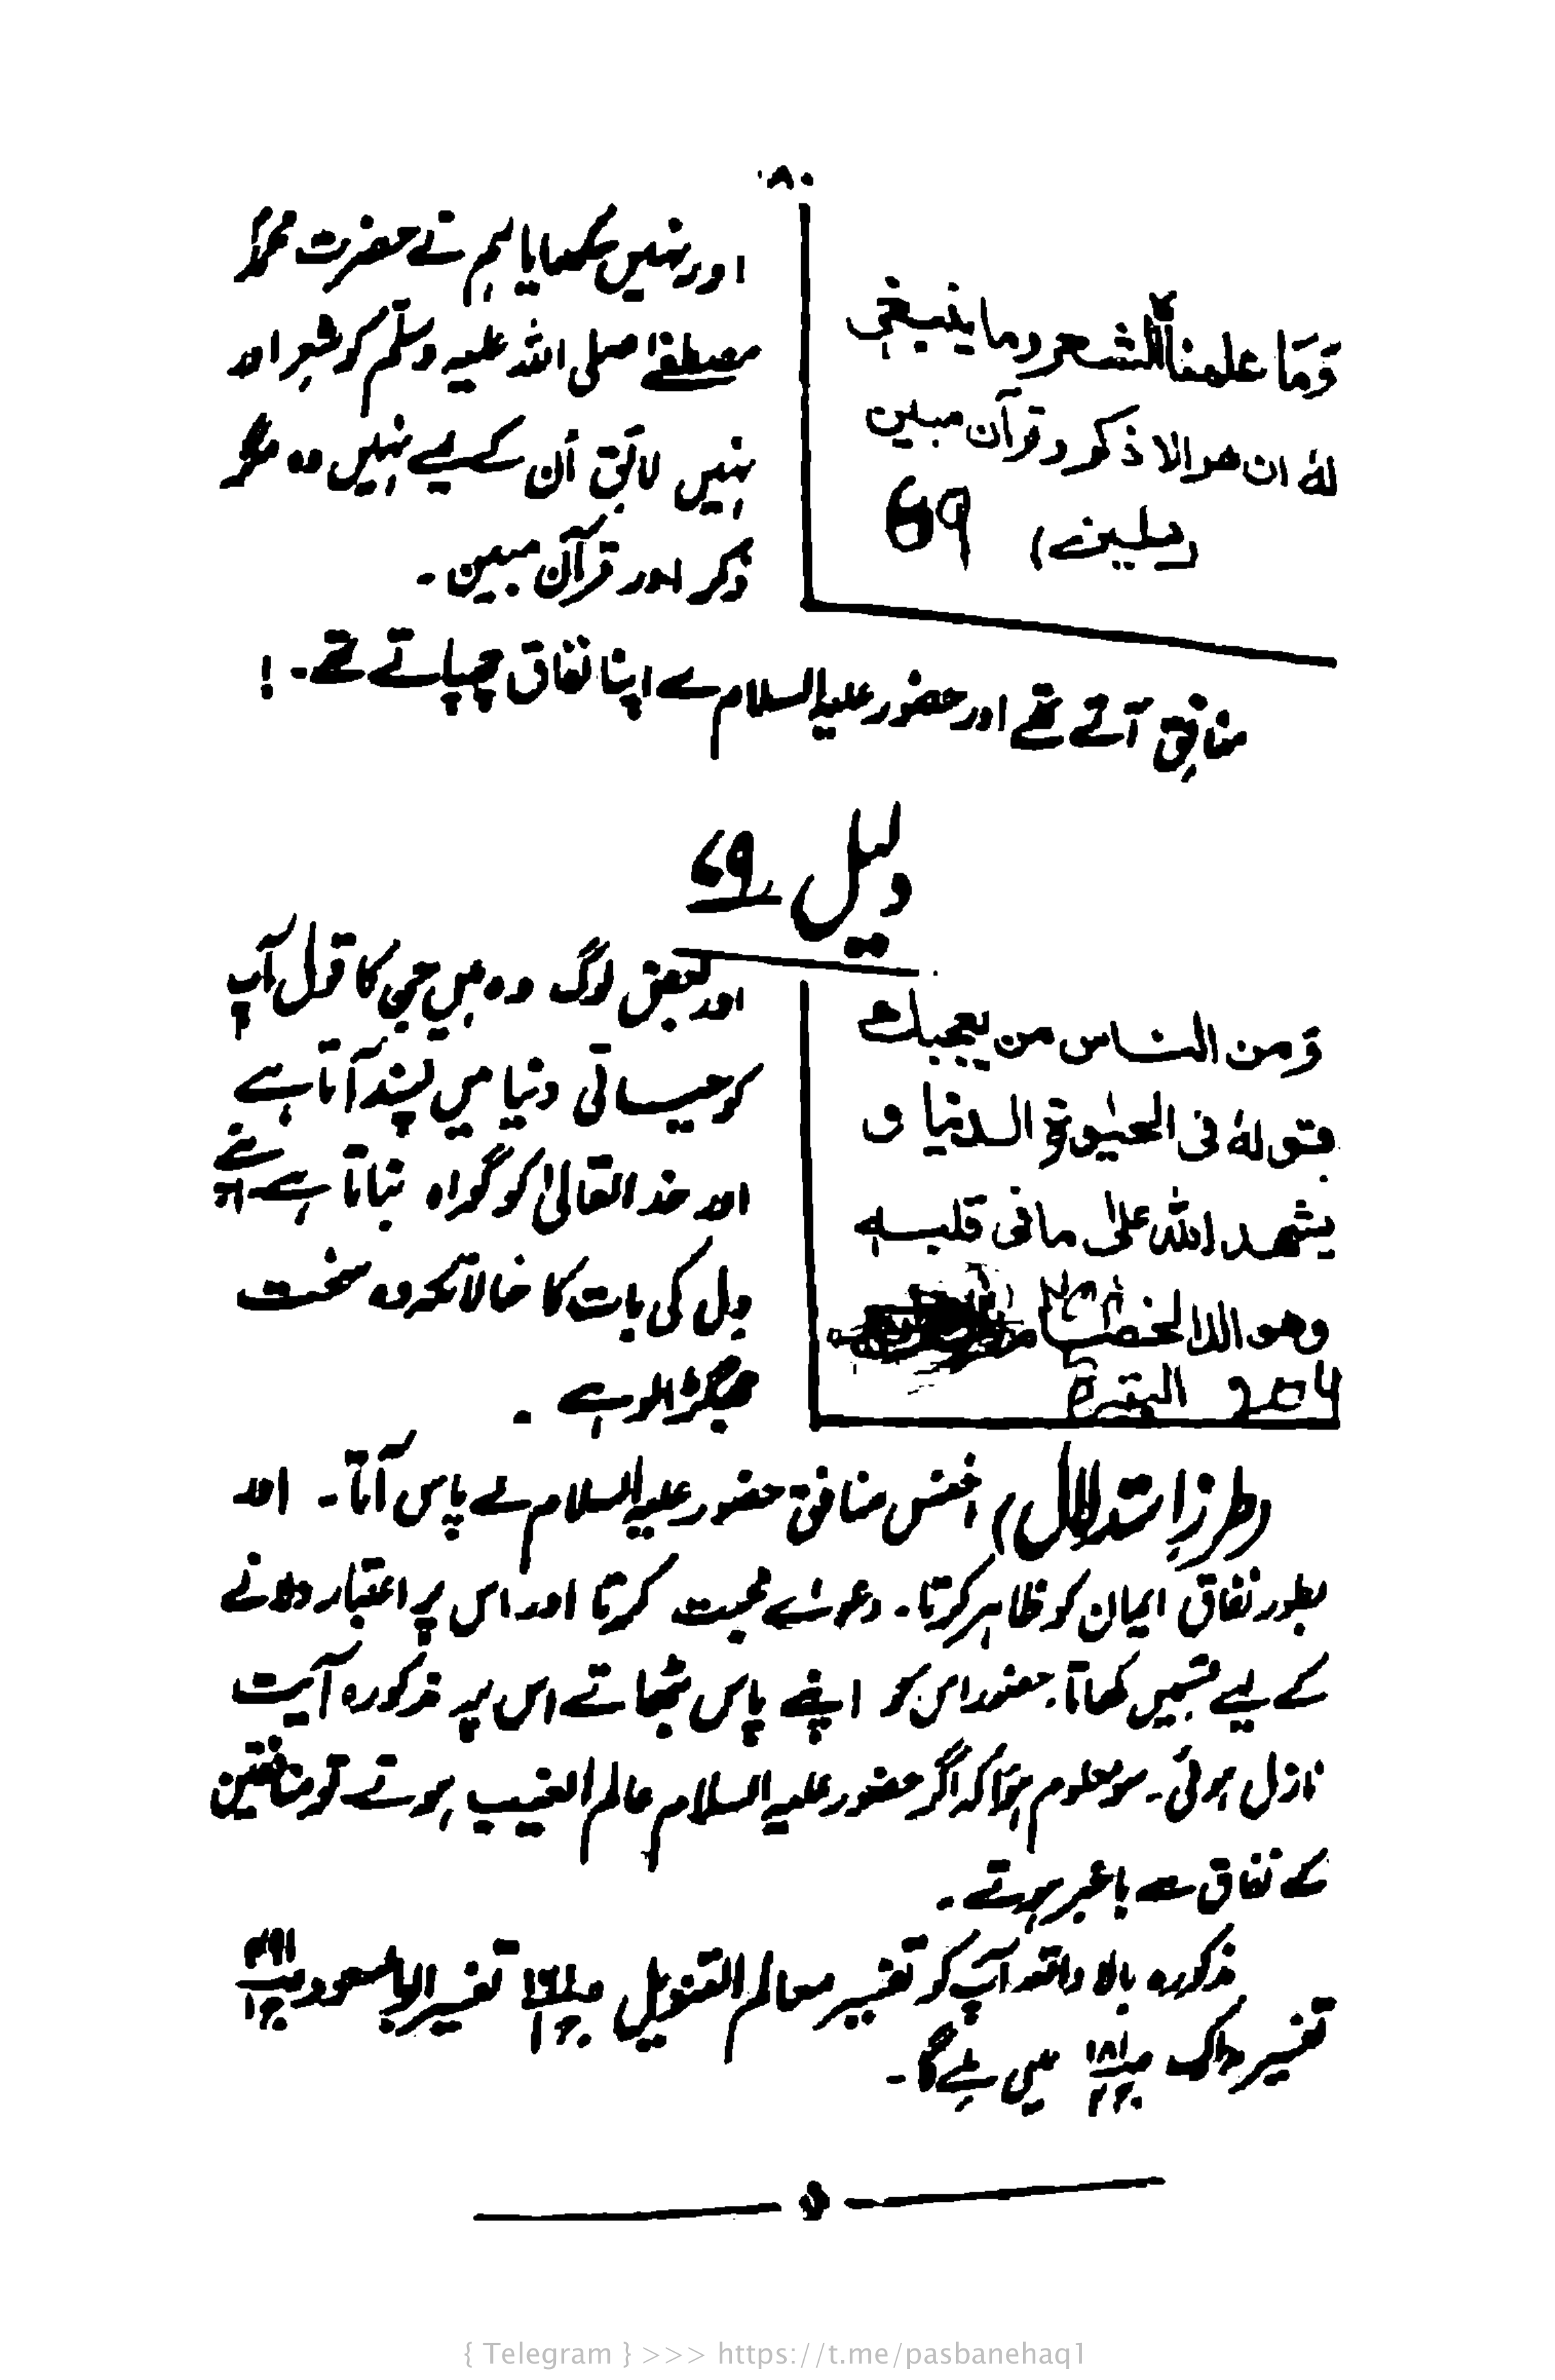 ۸۰
وَمَا علمناه الشعر وما ينبغي
لهٗ ان هو الا ذكر و قرآن مبين
(يٰسين) 69
اور نہیں سکھایا ہم نے حضرت محمدؐ
مصطفےٰ صلی اللہ علیہ وسلم کو شعر اور
نہیں لائق اُن کے لیے نہیں وہ مگر
ذکر اور قرآن مبین ۔
منافق آتے تھے اور حضور علیہ السلام سے اپنا نفاق چھپاتے تھے۔ !
دلیل ۶۹
وَمن الناس من يعجبك
قولهٗ فى الحيٰوة الدنيا و
يشهد الله علىٰ مافى قلبه
وهو الد الخصام
204 البقرة
اور بعض لوگ وہ ہیں جن کا قول آپ
کو حیاتی دنیا میں پسند آتا ہے
اور خدا تعالیٰ کو گواہ بناتا ہے اپنے
دل کی بات کا حالانکہ وہ سخت
جھگڑالو ہے ۔
(طرزِ استدلال) اخنس منافق حضور علیہ السلام کے پاس آتا۔ اور
بطور نفاق ایمان کو ظاہر کرتا۔ دعوےٰ محبت کرتا اور اس پر اعتبار دلانے
کے لیے قسمیں کھاتا۔ حضور اس کو اپنے پاس بٹھاتے اس پر مذکورہ آیت
نازل ہوئی۔ سو معلوم ہوا کہ اگر حضور علیہ السلام عالم الغیب ہوتے تو منافقین
کے نفاق سے باخبر ہوتے ۔
مذکورہ بالا واقعہ آپ کو تفسیر معالم التنزیل تفسیر ابوالسعود
تفسیر مدارک میں ملے گا۔
{ Telegram } >>> https://t.me/pasbanehaq1